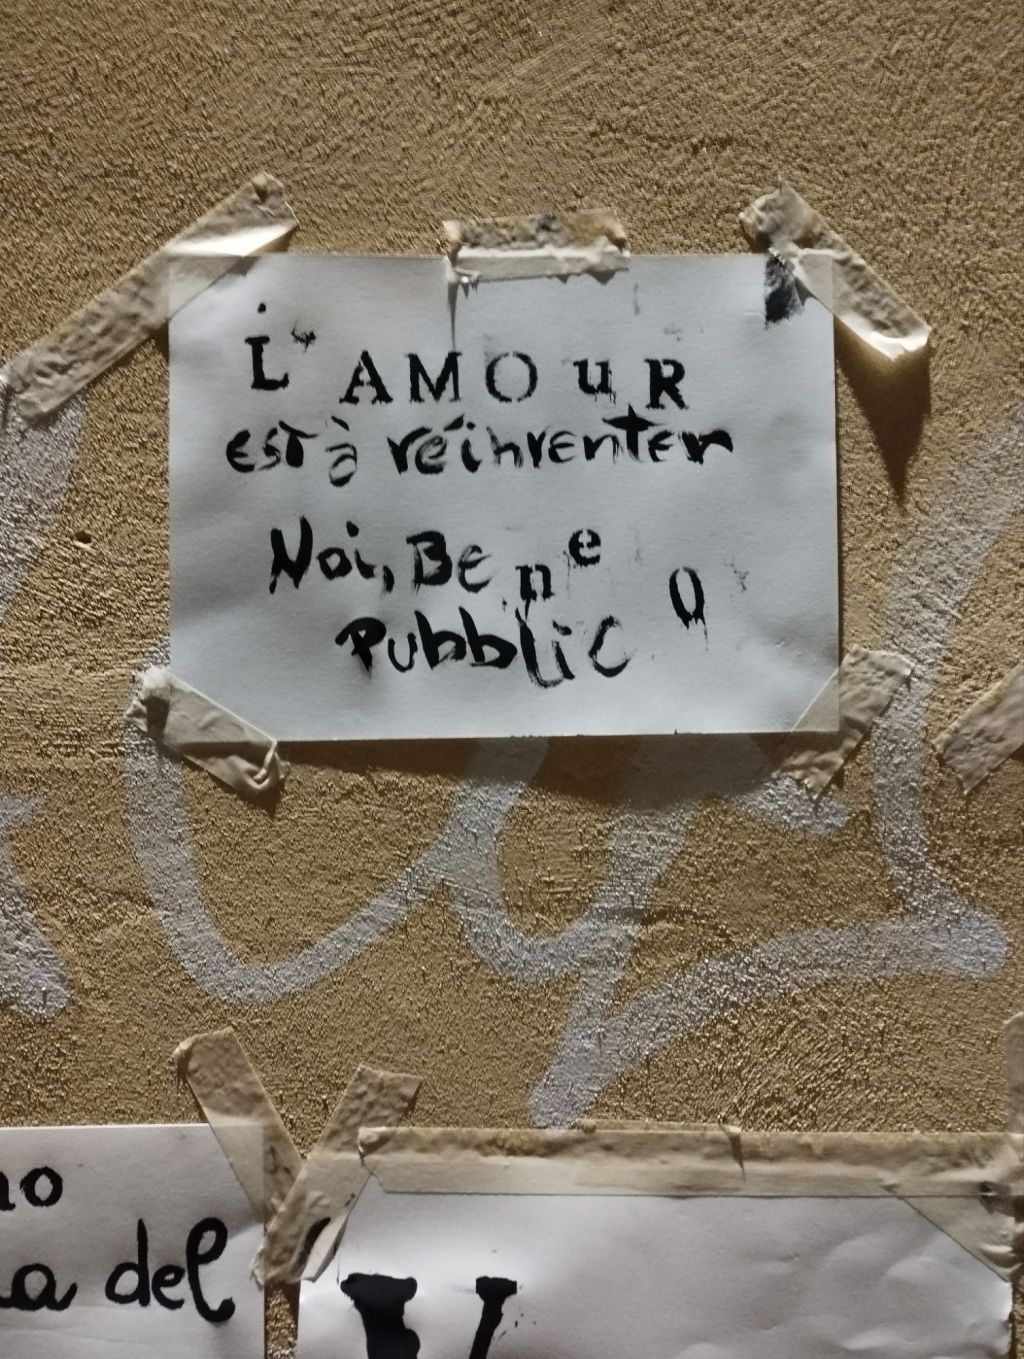 L'AMOuR
est à réinventer
Noi, Bene
PubbliCO
no
a del
V